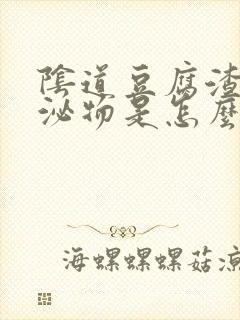 陰道豆腐渣
泌物是怎麼
海螺螺螺菇涼